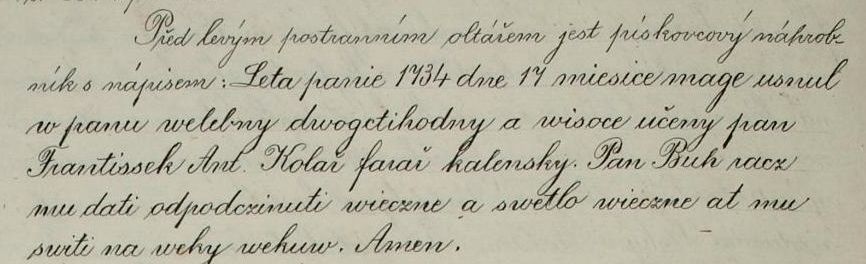 Před levým postranním oltářem jest pískovcový náhrob-
ník s nápisem: Leta panie 1734 dne 17 miesice mage usnul
w panu welebny dwogctihodny a wisoce učeny pan
Frantissek Ant. Kolař farař kalensky. Pan Buh racz
mu dati odpodczinuti wieczne a swetlo wieczne at mu
switi na weky wekuw. Amen.